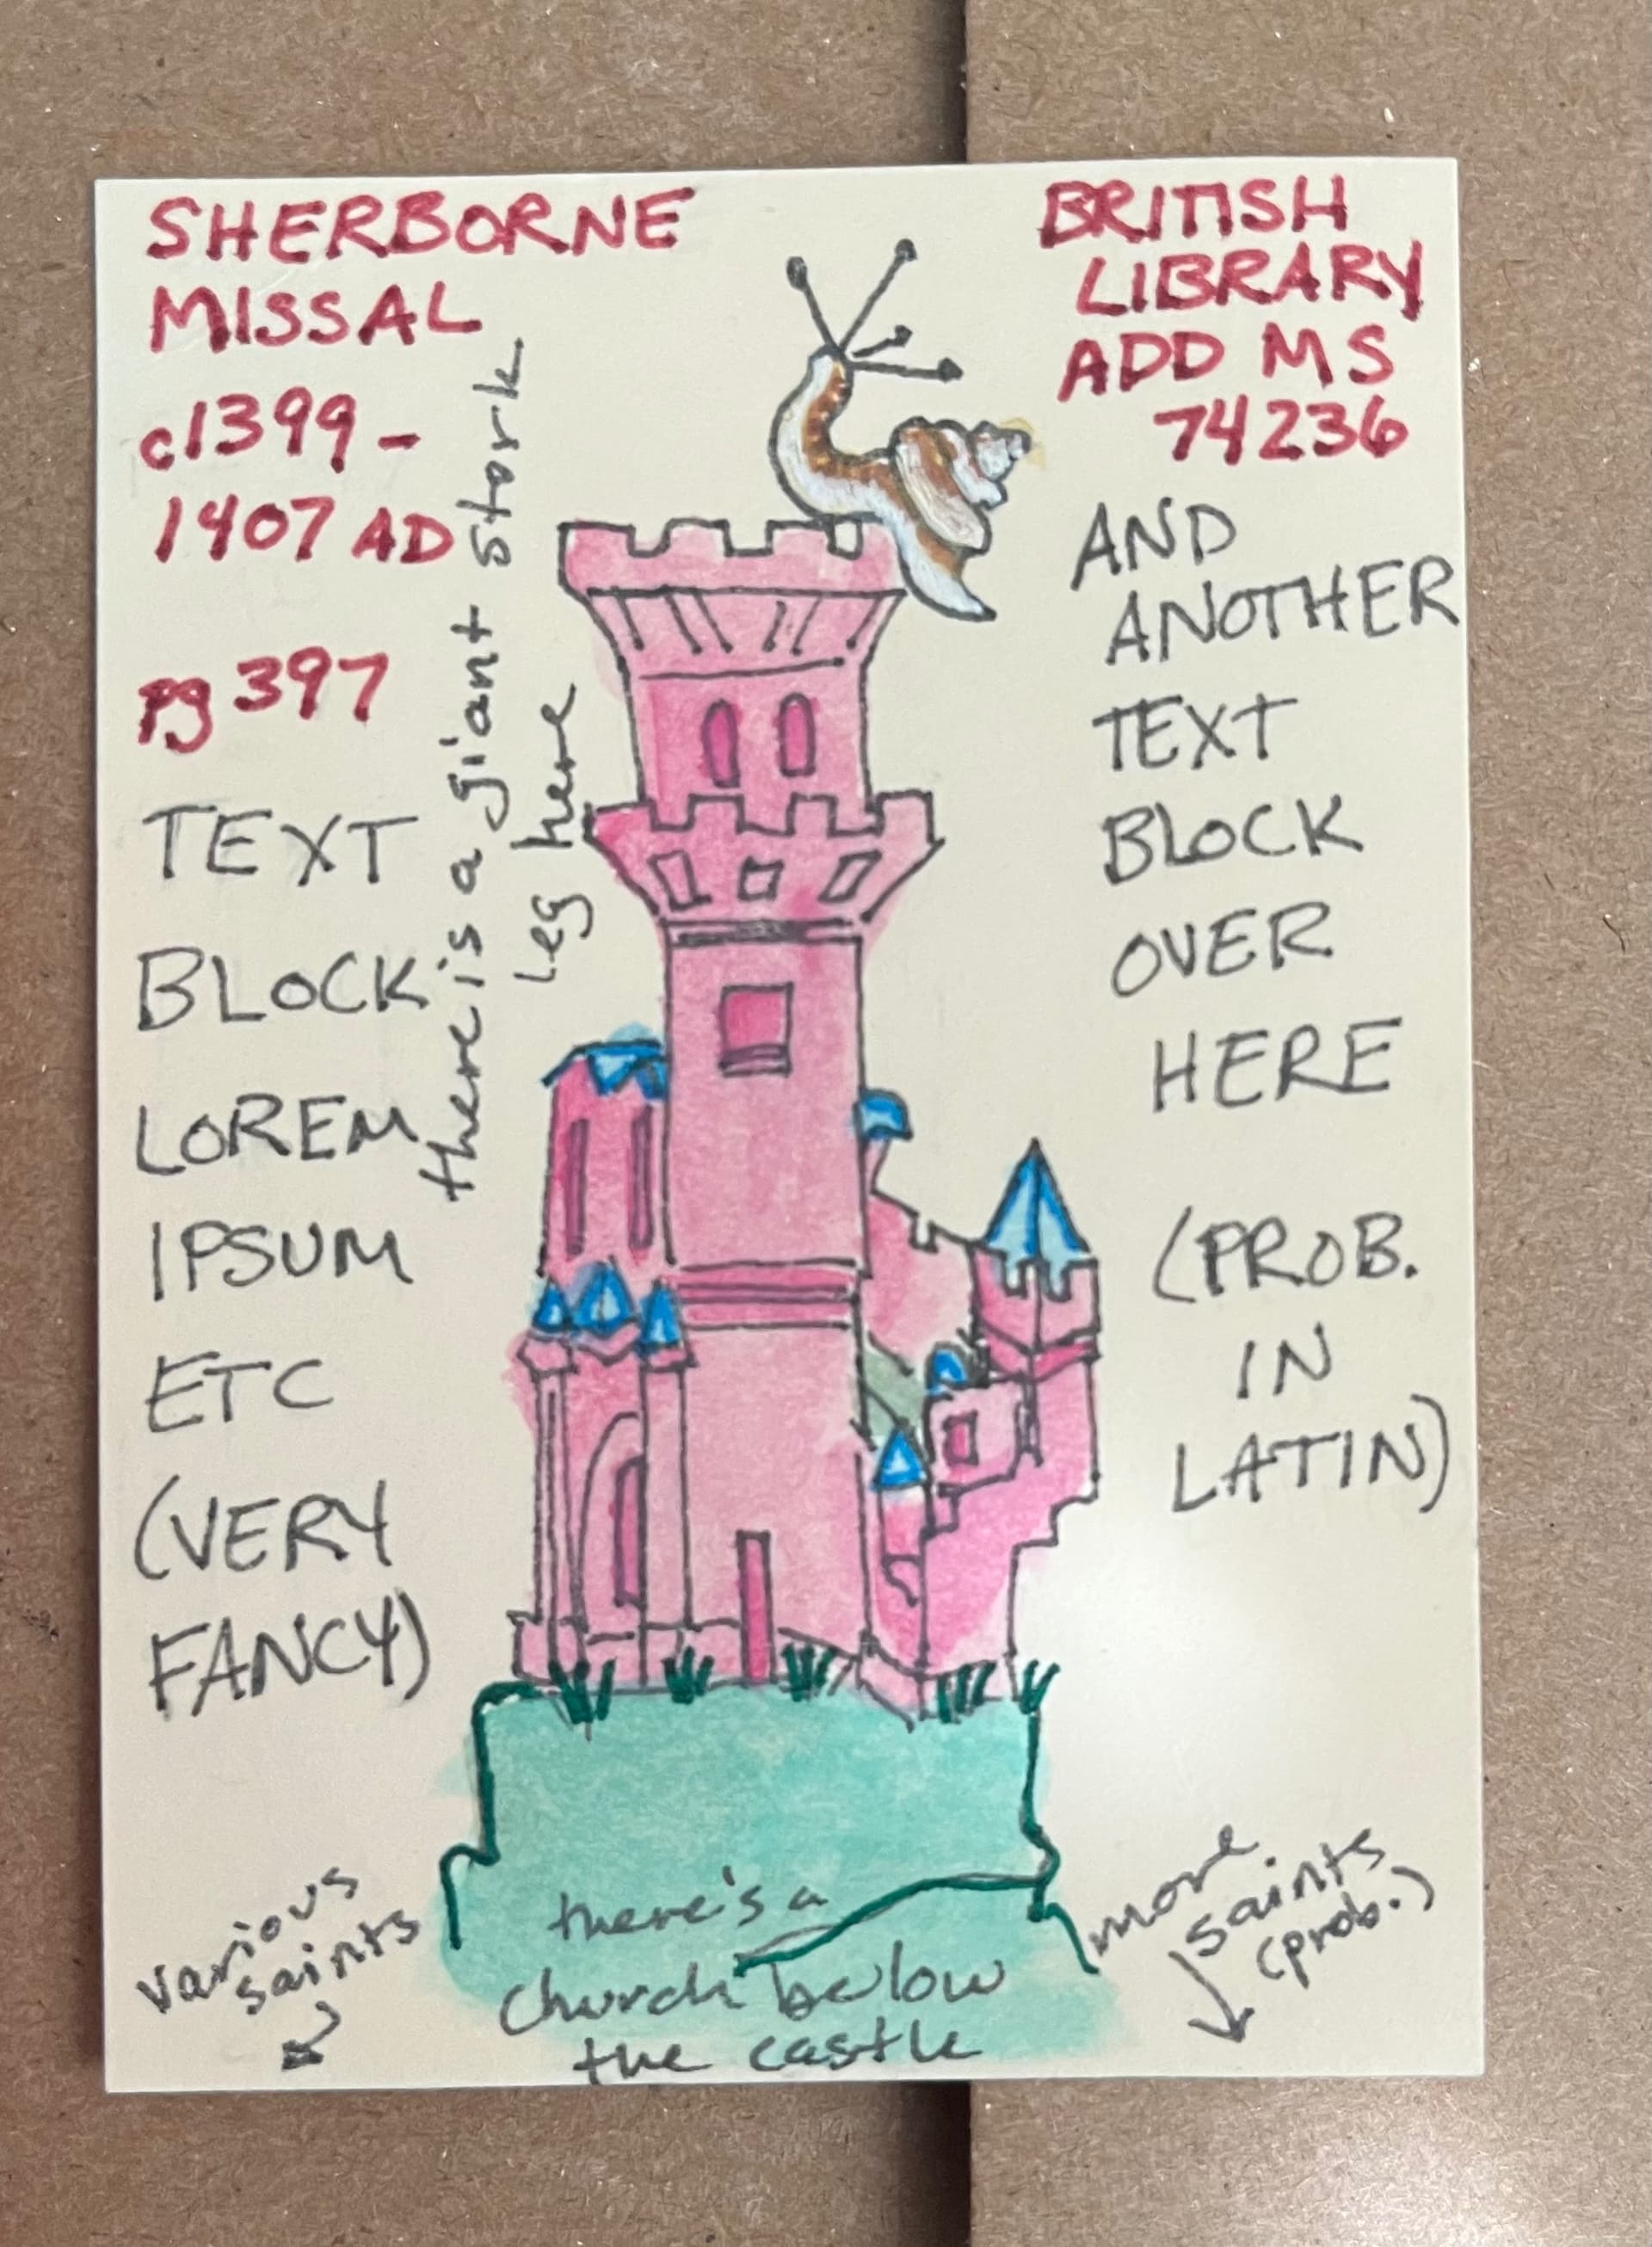 SHERBORNE
MISSAL
c1399-
1407 AD
pg 397
TEXT
BLOCK
LOREM
IPSUM
ETC
(VERY
FANCY)
there is a giant stork
leg here
BRITISH
LIBRARY
ADD MS
74236
AND
ANOTHER
TEXT
BLOCK
OVER
HERE
(PROB.
IN
LATIN)
various
saints
there's a
church below
the castle
more
saints
(prob.)